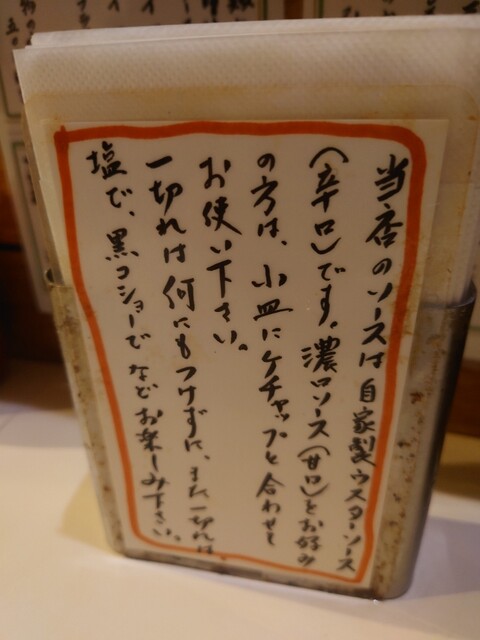 当店のソースは自家製ウスターソース
(辛口)です。濃口ソース(甘口)をお好み
の方は、小皿にケチャップと合わせて
お使い下さい。
一切れは何にもつけずに、また一切れは
塩で、黒コショーでなどお楽しみ下さい。